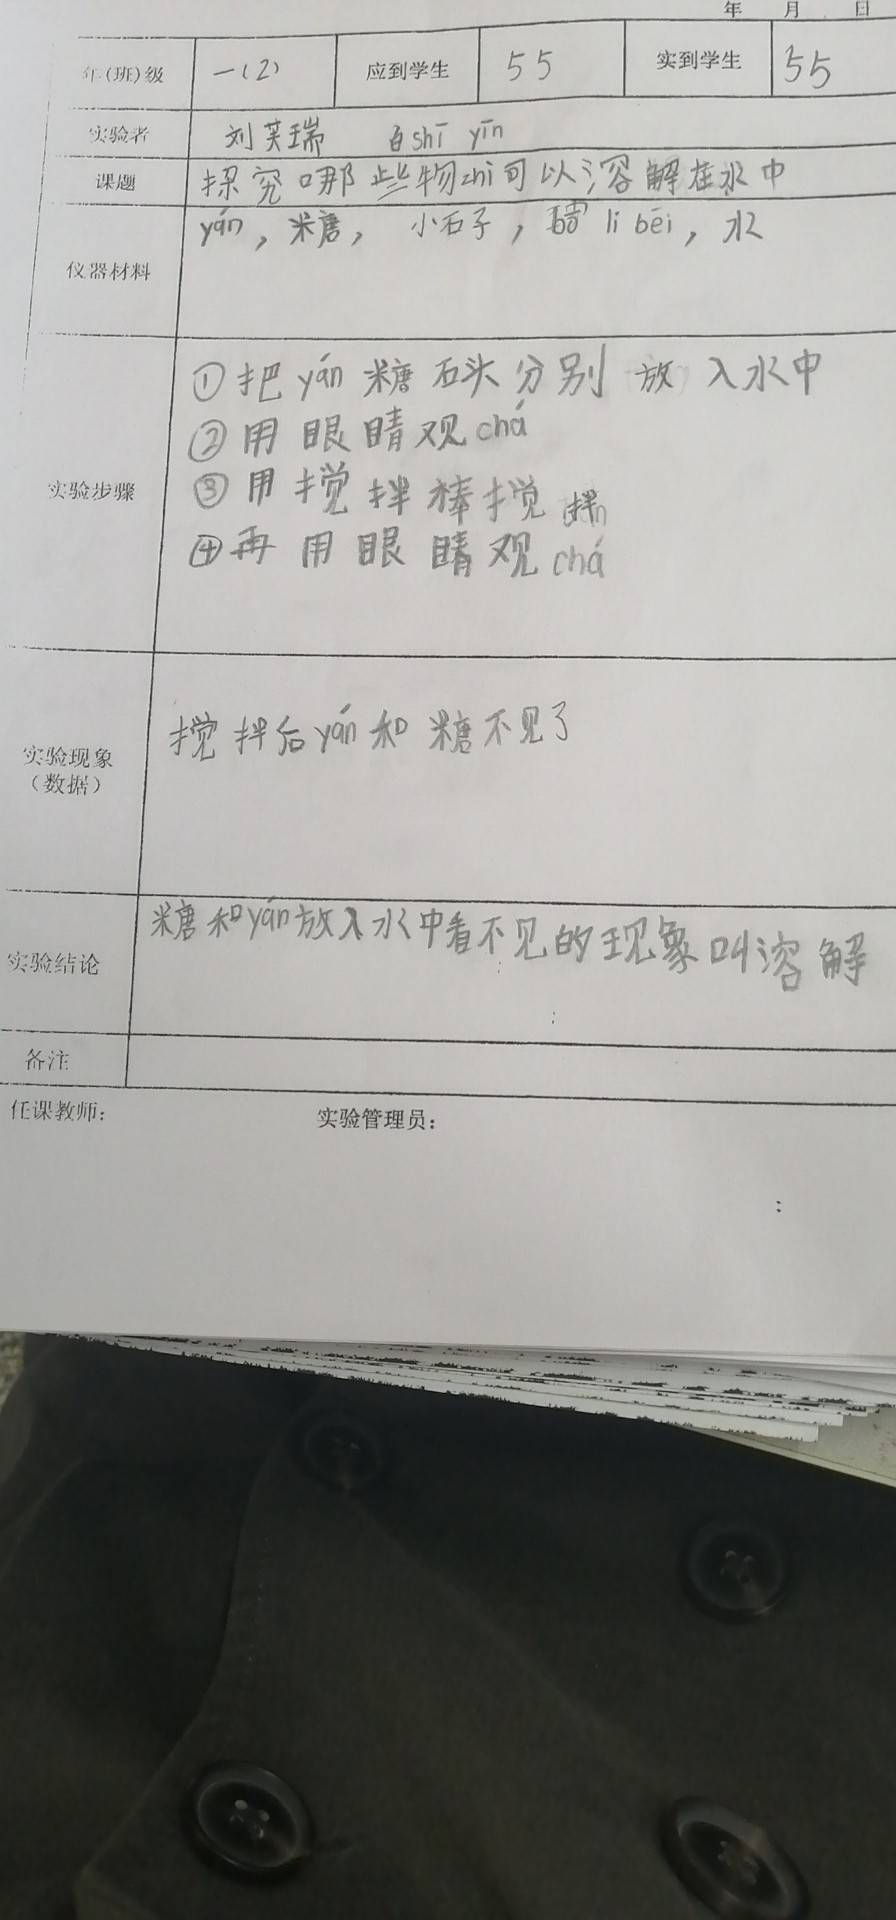 年 月 日
年(班)级 一(2) 应到学生 55 实到学生 55
实验者 刘芙瑞 白shī yīn
课题 探究哪些物zhì可以溶解在水中
仪器材料 yán，糖，小石子， lí bēi，水
实验步骤
①把yán糖石头分别放入水中
②用眼睛观chá
③用搅拌棒搅拌
④再用眼睛观chá
实验现象
（数据）
搅拌后yán和糖不见了
实验结论 糖和yán放入水中看不见的现象叫溶解
备注
任课教师： 实验管理员：